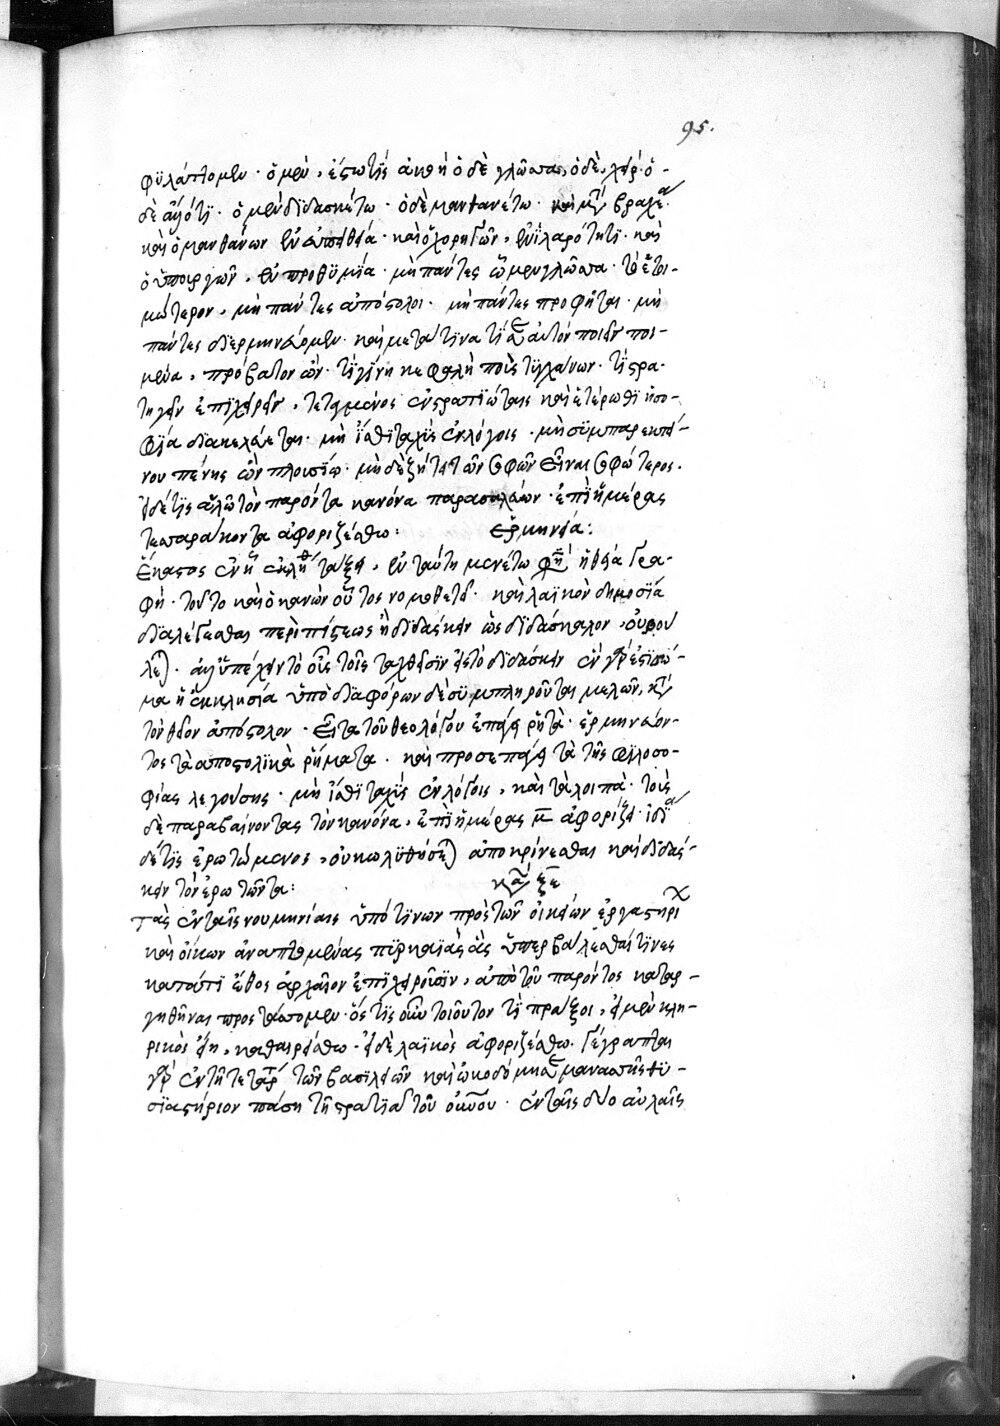 95.
φυλάττομεν· ὁ μὲν, ἔστω τίς ἀκοὴ ὁ δὲ γλῶσσα, ὁ δὲ, χείρ· ὁ
δὲ ἄλλότι· ὁ μὲν διδασκέτω· ὁ δὲ μανθανέτω· καὶ μετὰ βραχέα·
καὶ ὁ μανθάνων ἐν εὐπειθεία· καὶ ὁ χορηγῶν, ἐν ἱλαρότητι· καὶ
ὁ ὑπουργῶν, ἐν προθυμία· μὴ πάντες ὦμεν γλῶσσα· τὸ ἑτοι-
μώτερον, μὴ πάντες ἀπόστολοι· μὴ πάντες προφῆται· μὴ
πάντες διερμηνεύομεν· καὶ μετά τινα τί σεαυτὸν ποιεῖς ποι-
μένα, πρόβατον ὤν· τί γίνη κεφαλὴ ποῦς τυγχάνων· τί στρα-
τηγεῖν ἐπιχειρεῖς, τεταγμένος ἐν στρατιώταις καὶ ἑτέρωθι ἡ σο-
φία διακελεύεται· μὴ ἴσθι ταχὺς ἐν λόγοις· μὴ συμπαρεκτεί-
νου πένης ὢν πλουσίῳ· μὴ δὲ ζήτει τῶν σοφῶν εἶναι σοφώτερος·
εἰ δέ τις ἁλῶ τὸν παρόντα κανόνα παρασαλεύων· ἐπὶ ἡμέρας
τεσσαράκοντα ἀφοριζέσθω: ἑρμηνεία:
ἕκαστος ἐν ἧ ἐκλήθη τάξει, ἐν ταύτη μενέτω φησὶ ἡ θεία γρα-
φή· τοῦτο καὶ ὁ κανὼν οὗτος νομοθετεῖ· καὶ λαϊκὸν δημοσία
διαλέγεσθαι περὶ πίστεως ἢ διδάσκειν ὡς διδάσκαλον, οὐ βού
λεται· ἀλλ' ὑπέχειν τὸ οὖς τοῖς ταχθεῖσιν εἰς τὸ διδάσκειν ἓν γάρ ἐστι σῶ-
μα ἡ ἐκκλησία ὑπὸ διαφόρων δὲ συμπληροῦται μελῶν, κατὰ
τὸν θεῖον ἀπόστολον· εἶτα τοῦ θεολόγου ἐπάγει ῥητὰ· ἑρμηνεύον-
τος τὰ ἀποστολικὰ ῥήματα· καὶ προσεπάγει τὰ τῆς φιλοσο-
φίας λεγούσης· μὴ ἴσθι ταχὺς ἐν λόγοις, καὶ τὰ λοιπὰ· τοὺς
δὲ παραβαίνοντας τὸν κανόνα, ἐπὶ ἡμέρας μ ἀφορίζει· ἰδία
δέ τις ἐρωτώμενος, οὐ κωλυθήσεται ἀποκρίνεσθαι καὶ διδάσ-
κειν τὸν ἐρωτῶντα: καν ξε
τὰς ἐν ταῖς νουμηνίαις ὑπό τινων πρὸς τῶν οἰκείων ἐργαστηρί
καὶ οἴκων ἀναπτομένας πυρκαϊὰς ἃς ὑπερβάλλεσθαί τινες
κατά τι ἔθος ἀρχαῖον ἐπιχειροῦσιν, ἀπὸ τοῦ παρόντος καταρ-
γηθῆναι προστάττομεν· ὅστις οὖν τοιοῦτόν τι πράξοι, εἰ μὲν κλη-
ρικὸς εἴη, καθαιρείσθω· εἰ δὲ λαϊκὸς ἀφοριζέσθω. γέγραπται
γὰρ ἐν τῆ τετάρτη τῶν βασιλειῶν καὶ ὠκοδόμησε μανασσῆς θυ-
σιαστήριον πάση τῆ στρατιᾶ τοῦ οὐνου· ἐν ταῖς δύο αὐλαῖς